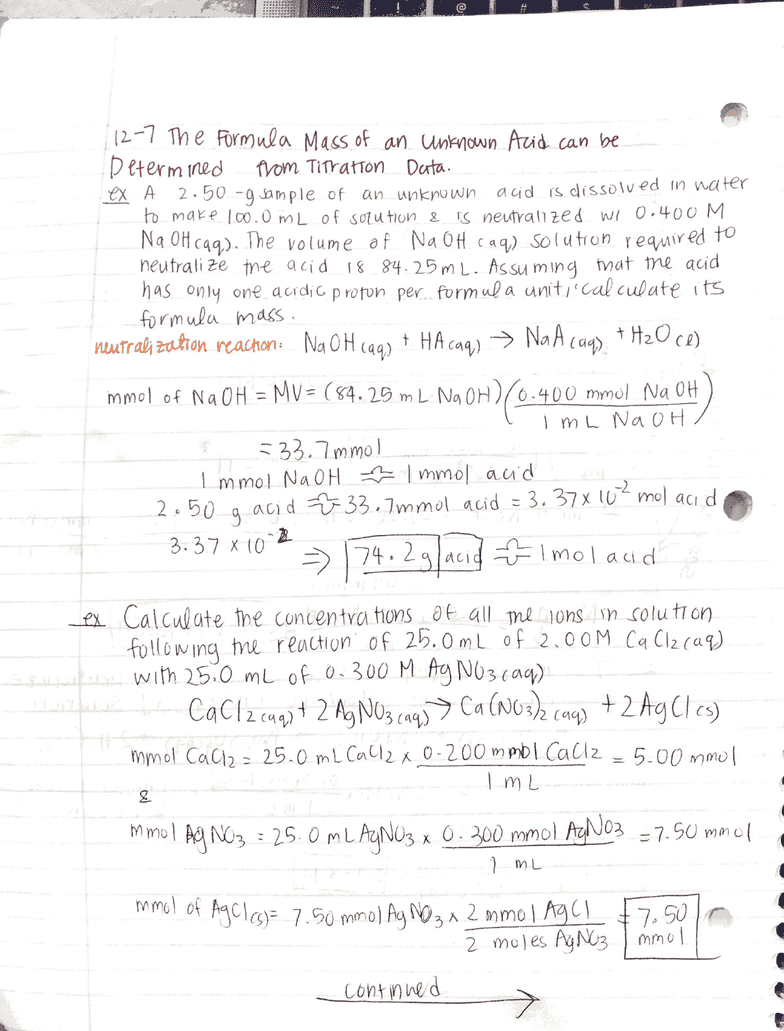 ! @ # $ %
12-7 The Formula Mass of an Unknown Acid can be
Determined from Titration Data.
ex A 2.50-g sample of an unknown acid is dissolved in water
to make 100.0 mL of solution & is neutralized w/ 0.400 M
NaOH(aq). The volume of NaOH(aq) solution required to
neutralize the acid is 84.25mL. Assuming that the acid
has only one acidic proton per formula unit, calculate its
formula mass.
neutralization reaction: NaOH(aq) + HA(aq) → NaA(aq) + H2O(l)
mmol of NaOH = MV = (84.25 mL NaOH)(0.400 mmol NaOH
1 mL NaOH)
= 33.7mmol
1 mmol NaOH ≎ 1 mmol acid
2.50 g acid ≎ 33.7mmol acid = 3.37 x 10⁻² mol acid
3.37 x 10⁻²
⇒ 74.2g acid ≎ 1mol acid
ex Calculate the concentrations of all the ions in solution
following the reaction of 25.0mL of 2.00M CaCl2(aq)
with 25.0 mL of 0.300 M AgNO3(aq)
CaCl2(aq) + 2AgNO3(aq) → Ca(NO3)2(aq) + 2AgCl(s)
mmol CaCl2 = 25.0 mL CaCl2 x 0.200 mmol CaCl2 = 5.00 mmol
1 mL
&
mmol AgNO3 = 25.0 mL AgNO3 x 0.300 mmol AgNO3 = 7.50 mmol
1 mL
mmol of AgCl(s) = 7.50 mmol AgNO3 x 2 mmol AgCl = 7.50
2 moles AgNO3 mmol
continued →